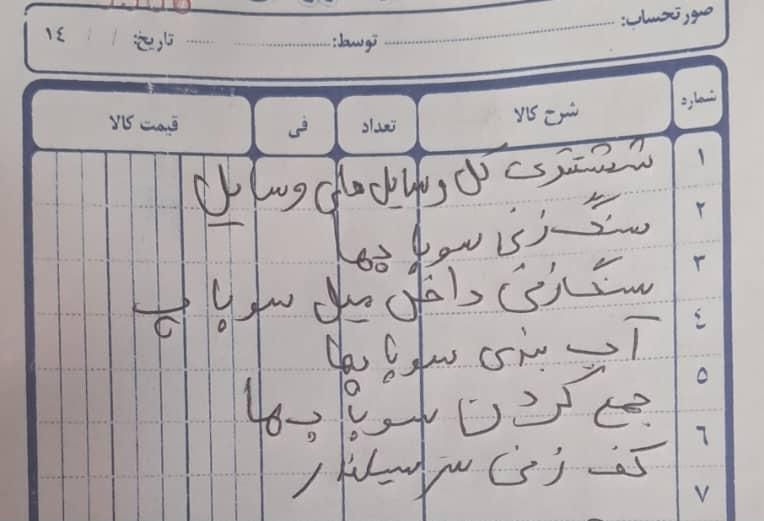 صورتحساب: توسط: تاریخ: / / ۱۴
شماره شرح کالا تعداد فی قیمت کالا
۱ شستشوی کل وسایل های وسایل
۲ سنگ زنی سوپاپها
۳ سنگ زنی داخل میل سوپاپ
۴ آب بندی سوپاپها
۵ جمع کردن سوپاپها
۶ کف زنی سر سیلندر
۷